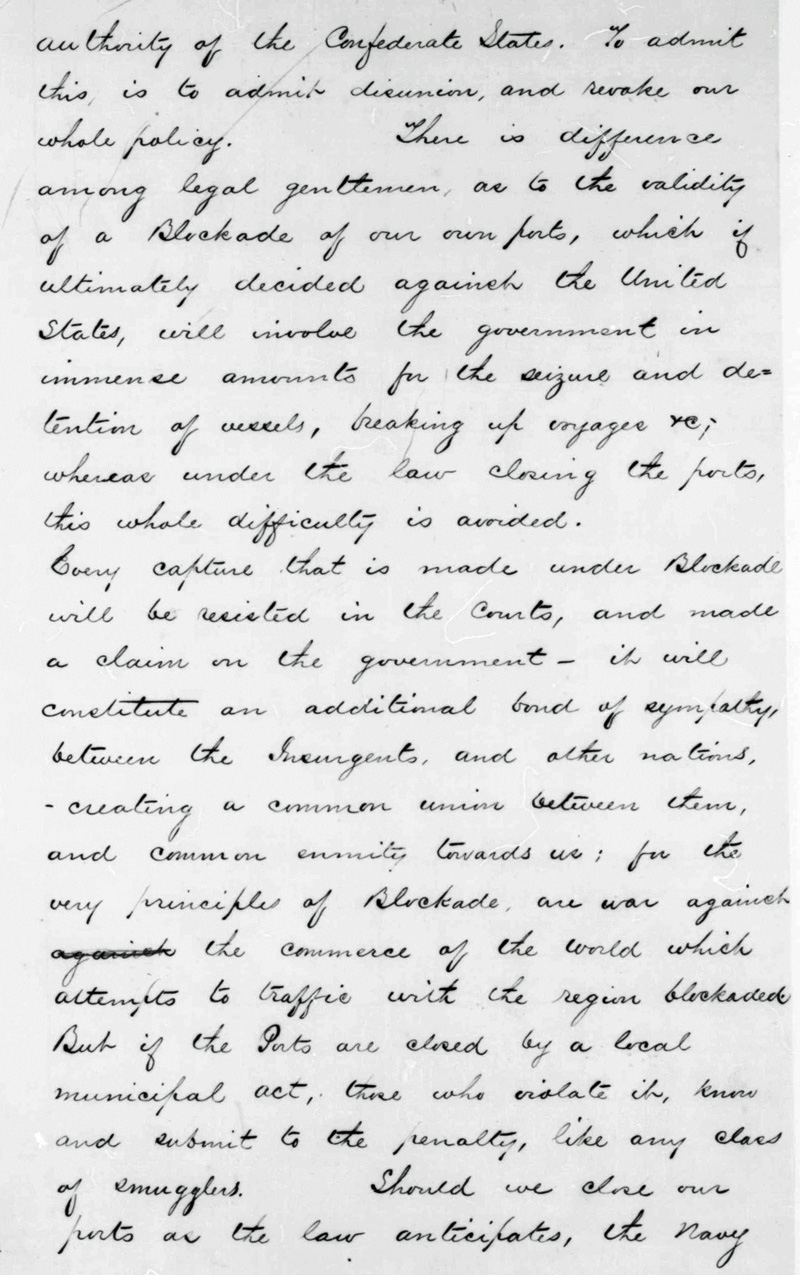 authority of the Confederate States. To admit
this, is to admit disunion, and revoke our
whole policy. There is difference
among legal genttemen, as to the validity
of a Blockade of our own ports, which if
ultimately decided against the United
States, will involve the government in
immense amounts for the seizure and de=
tention of vessels, breaking up voyages &c;
whereas under the law closing the ports,
this whole difficulty is avoided.
Every capture that is made under Blockade
will be resisted in the Courts, and made
a claim on the government - it will
constitute an additional bond of sympathy,
between the Insurgents, and other nations,
- creating a common union between them,
and common enmity towards us; for the
very principles of Blockade, are war against
against the commerce of the world which
attempts to traffic with the region blockaded
But if the Ports are closed by a local
municipal act, those who violate it, know
and submit to the penalty, like any class
of smugglers. Should we close our
ports as the law anticipates, the Navy